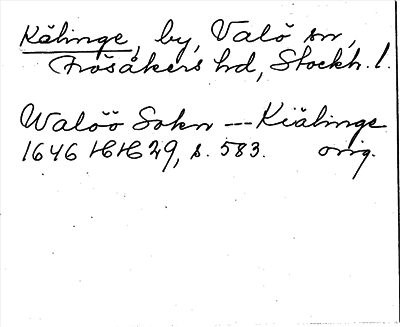 Källinge, by, Valö sn,
Frösåkers hd, Stockh. l.
Walöö Sokn --- Kiälinge
1646 HH 29, s. 583. orig.